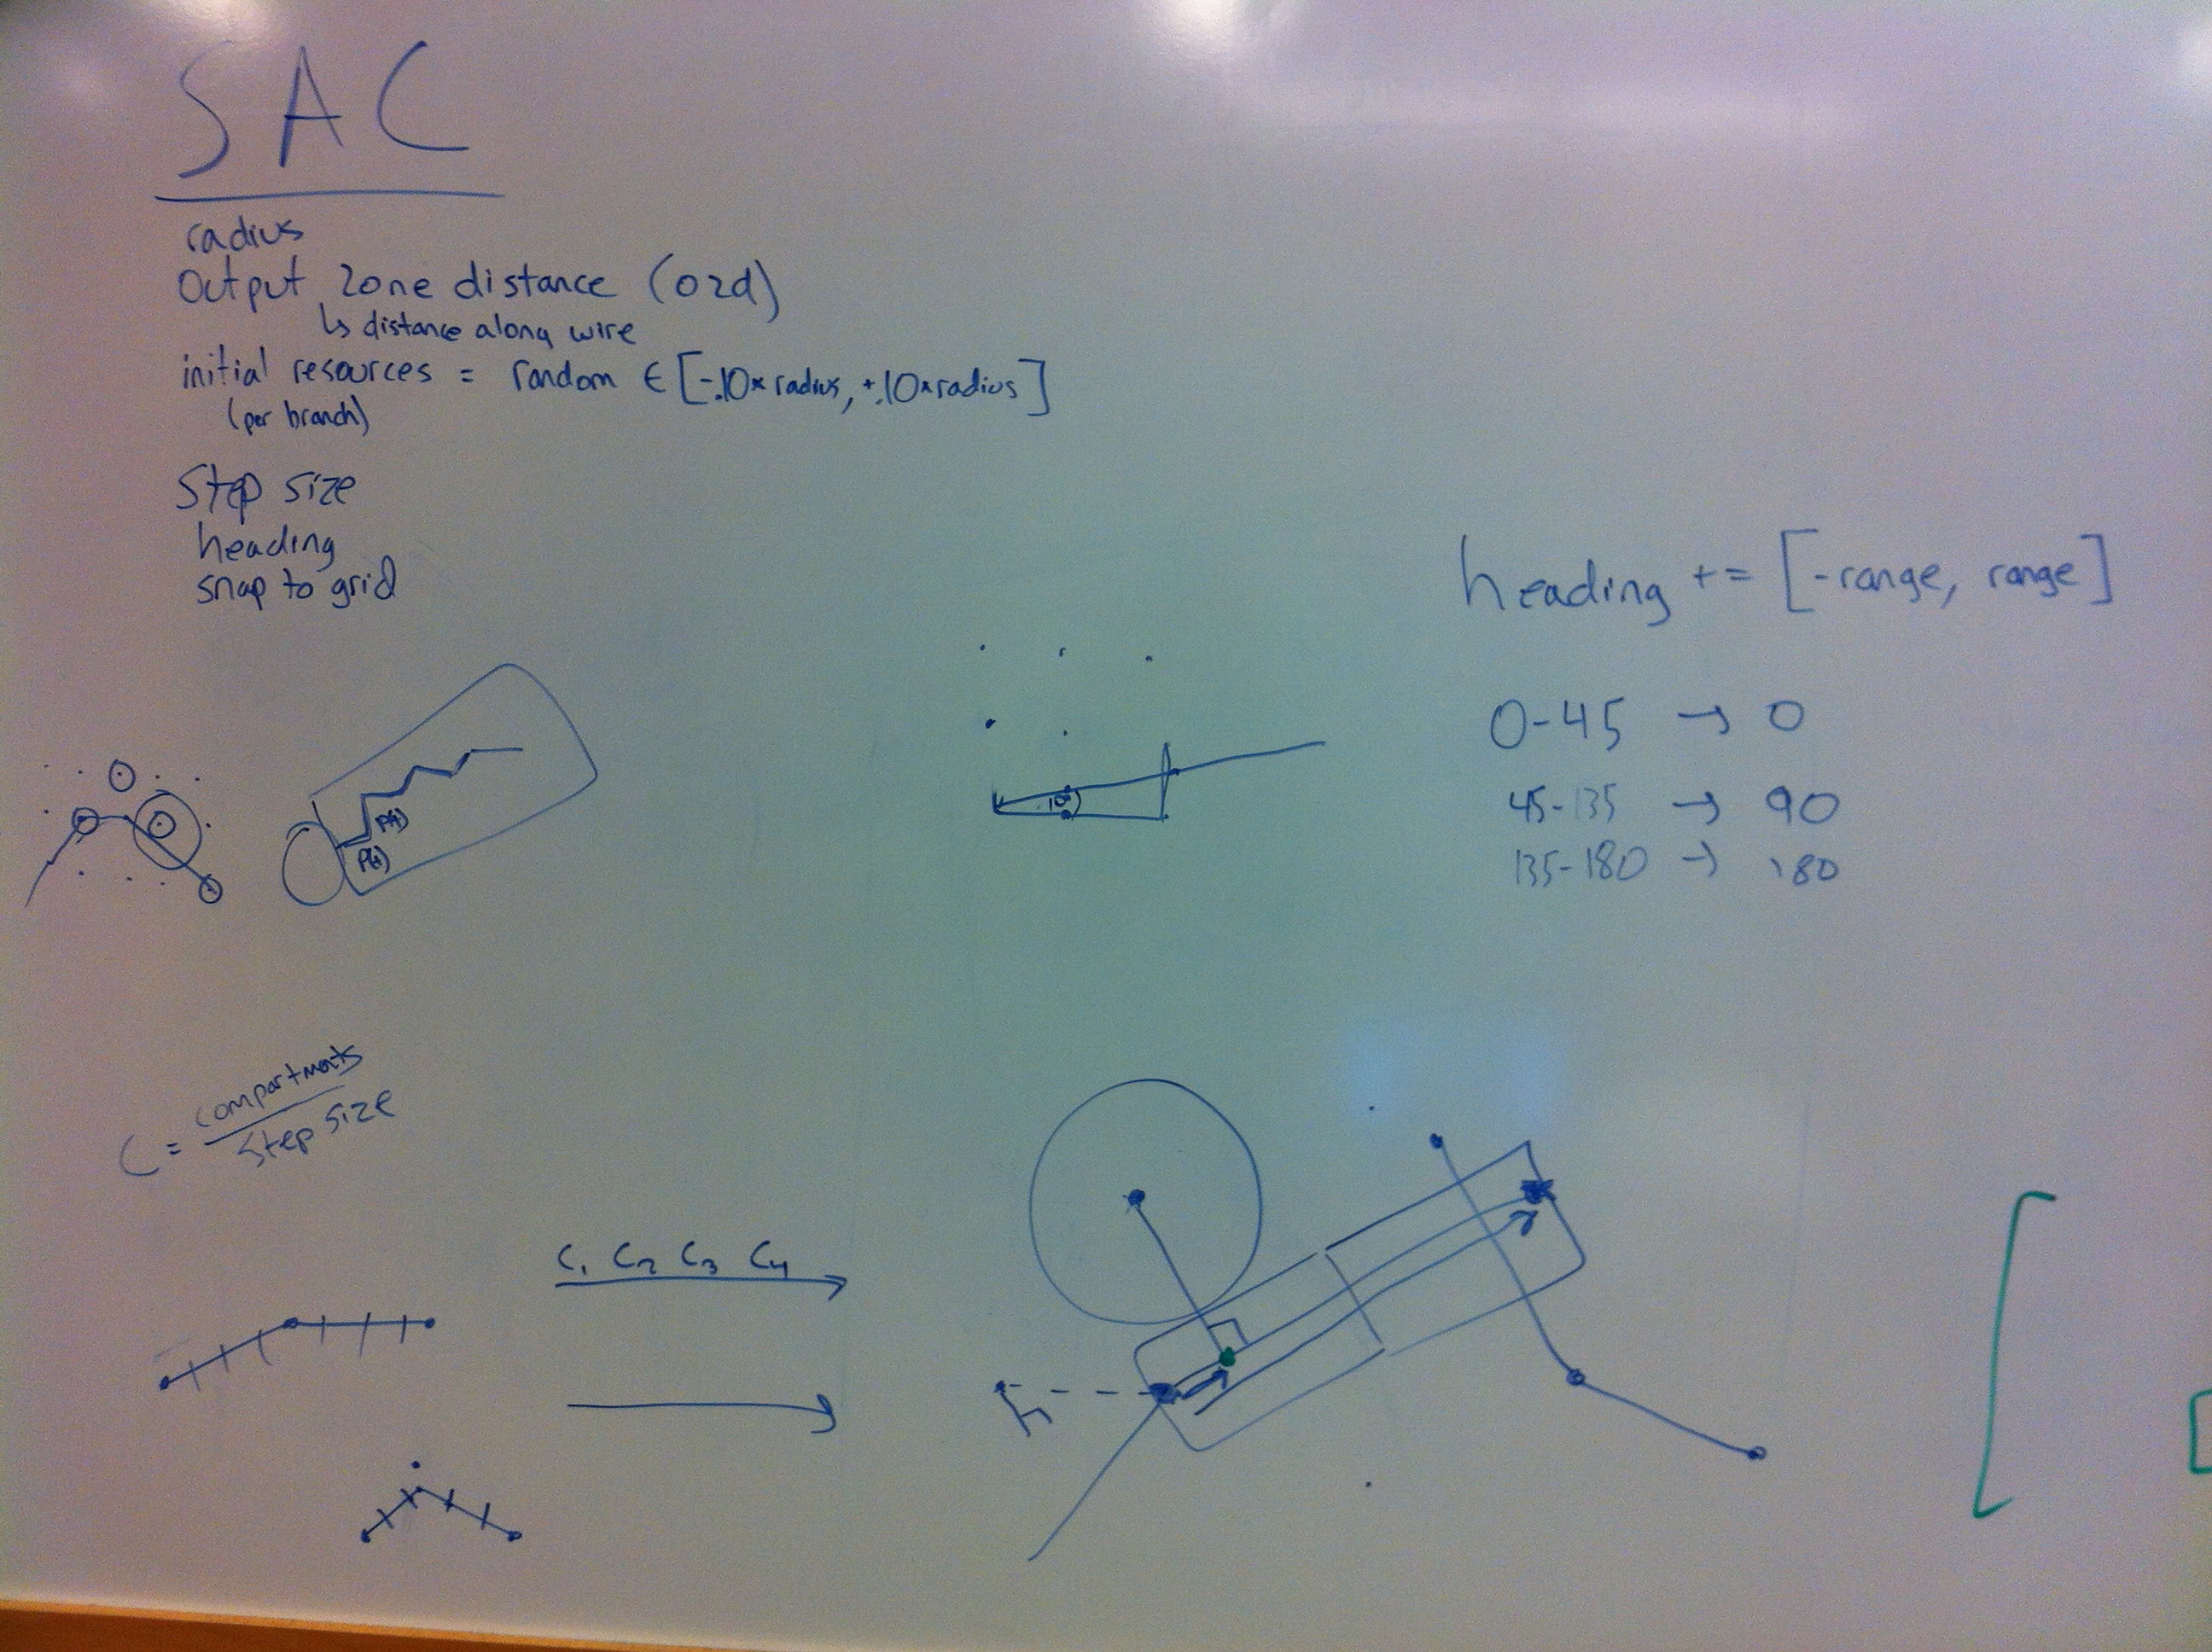 SAC
radius
Output zone distance (ozd)
↳ distance along wire
initial resources = random ∈ [-.10×radius, +.10×radius]
(per branch)
Step size
heading
snap to grid
heading += [-range, range]
0-45 → 0
45-135 → 90
135-180 → 180
10°
P(t)
P(t)
C = compartments
step size
C1 C2 C3 C4